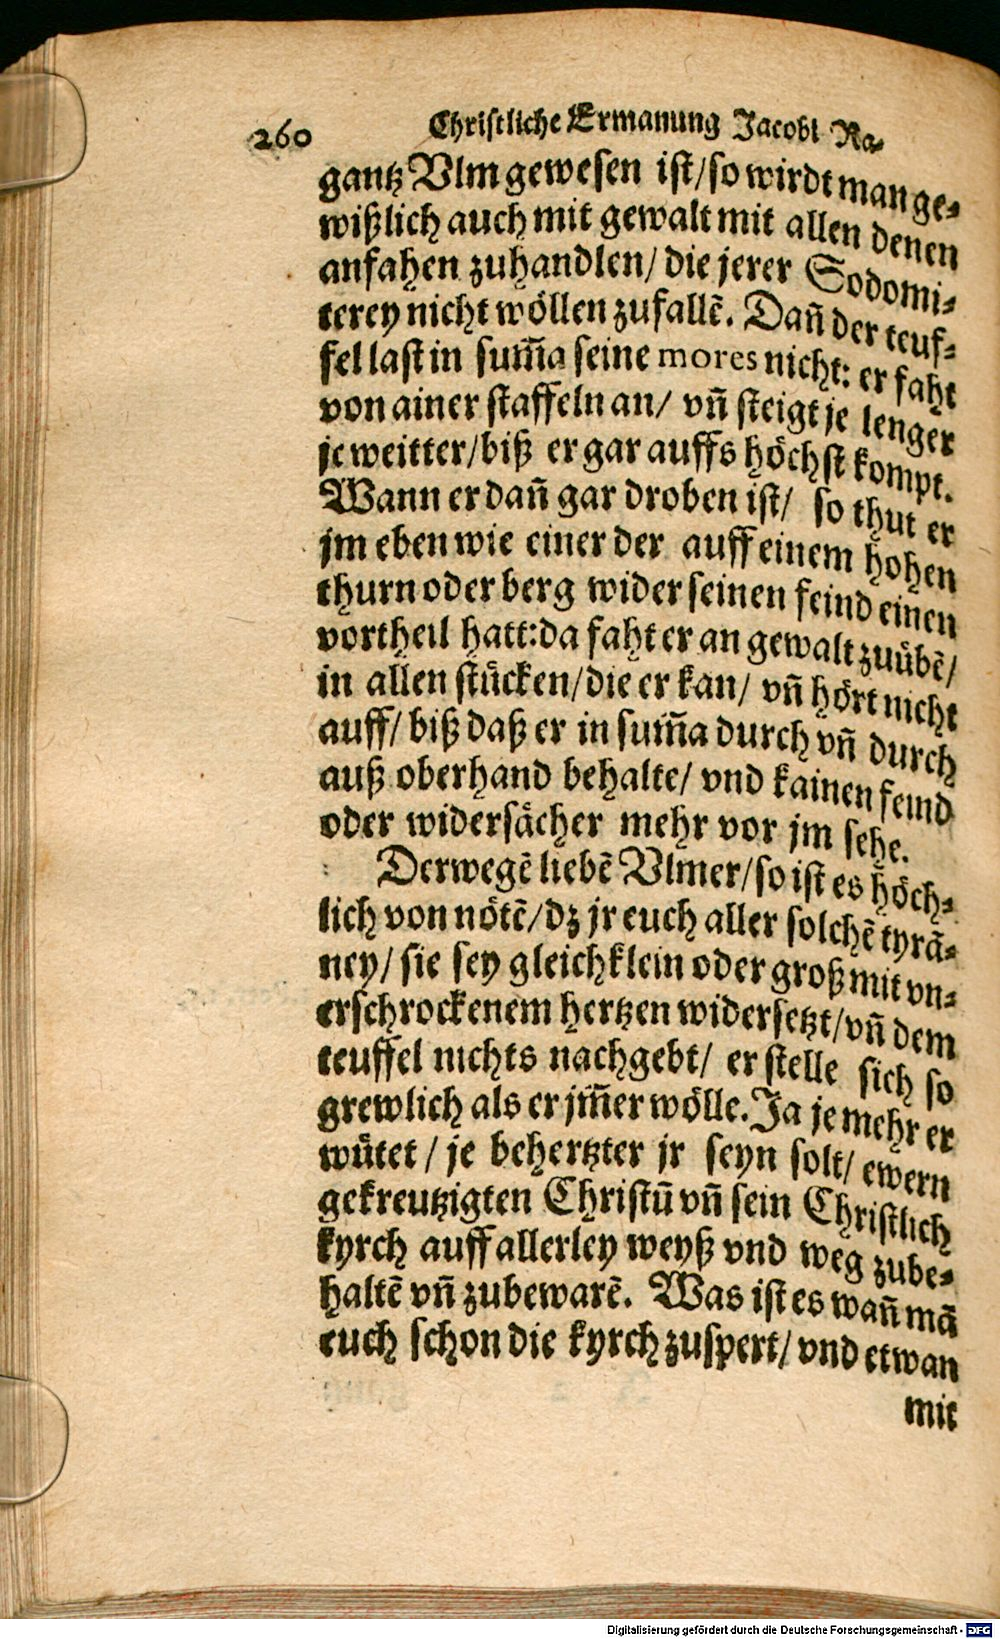 260 Christliche Ermanung Jacobi Ra-
gantz Vlm gewesen ist/so wirdt man ge-
wißlich auch mit gewalt mit allen denen
anfahen zuhandlen/ die jerer Sodomi-
terey nicht wöllen zufallē. Dañ der teuf-
fel last in sum̃a seine mores nicht: er faht
von ainer staffeln an/ vñ steigt je lenger
je weitter/biß er gar auffs höchst kompt.
Wann er dañ gar droben ist/ so thut er
jm eben wie einer der auff einem hohen
thurn oder berg wider seinen feind einen
vortheil hatt:da faht er an gewalt zuübē/
in allen stücken/die er kan/ vñ hört nicht
auff/ biß daß er in sum̃a durch vñ durch
auß oberhand behalte/ vnd kainen feind
oder widersächer mehr vor jm sehe.
Derwegē liebē Vlmer/so ist es höch-
lich von nötē/dz jr euch aller solchē tyrā-
ney/ sie sey gleich klein oder groß mit vn-
erschrockenem hertzen widersetzt/vñ dem
teuffel nichts nachgebt/ er stelle sich so
grewlich als er jm̃er wölle. Ja je mehr er
wütet / je behertzter jr seyn solt/ ewern
gekreutzigten Christū vñ sein Christlich
kyrch auff allerley weyß vnd weg zube-
haltē vñ zubewarē. Was ist es wañ mā
euch schon die kyrch zuspert/ vnd etwan
mit
Digitalisierung gefördert durch die Deutsche Forschungsgemeinschaft - DFG